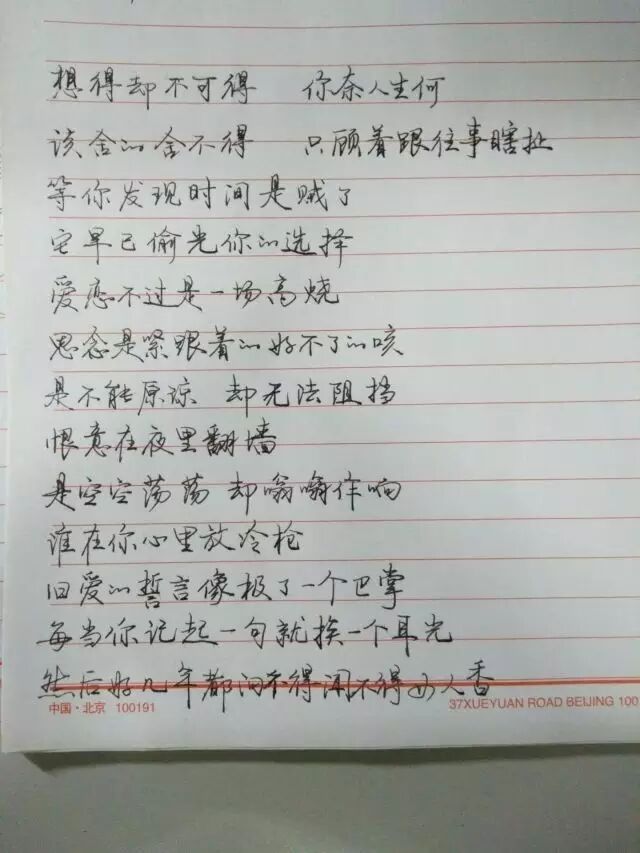 想得却不可得 你奈人生何
该舍的舍不得 只顾着跟往事瞎扯
等你发现时间是贼了
它早已偷光你的选择
爱恋不过是一场高烧
思念是紧跟着的好不了的咳
是不能原谅 却无法阻挡
恨意在夜里翻墙
是空空荡荡 却嗡嗡作响
谁在你心里放冷枪
旧爱的誓言像极了一个巴掌
每当你记起一句就挨一个耳光
然后好几年都问不得闻不得女人香
中国·北京 100191 37XUEYUAN ROAD BEIJING 100